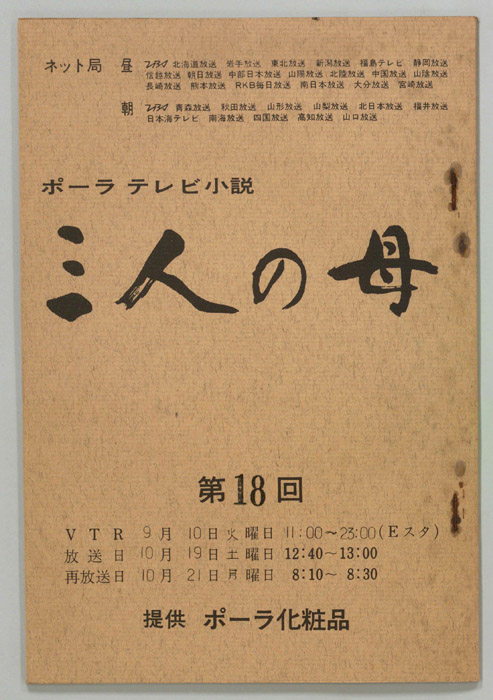 ネット局 昼 TBS 北海道放送 岩手放送 東北放送 新潟放送 福島テレビ 静岡放送
信越放送 朝日放送 中部日本放送 山陽放送 北陸放送 中国放送 山陰放送
長崎放送 熊本放送 RKB毎日放送 南日本放送 大分放送 宮崎放送
朝 TBS 青森放送 秋田放送 山形放送 山梨放送 北日本放送 福井放送
日本海テレビ 南海放送 四国放送 高知放送 山口放送
ポーラ テレビ小説
三人の母
第18回
VTR 9月 10日 火曜日 11:00～23:00(Eスタ)
放送日 10月 19日 土曜日 12:40～13:00
再放送日 10月 21日 月曜日 8:10～ 8:30
提供 ポーラ化粧品